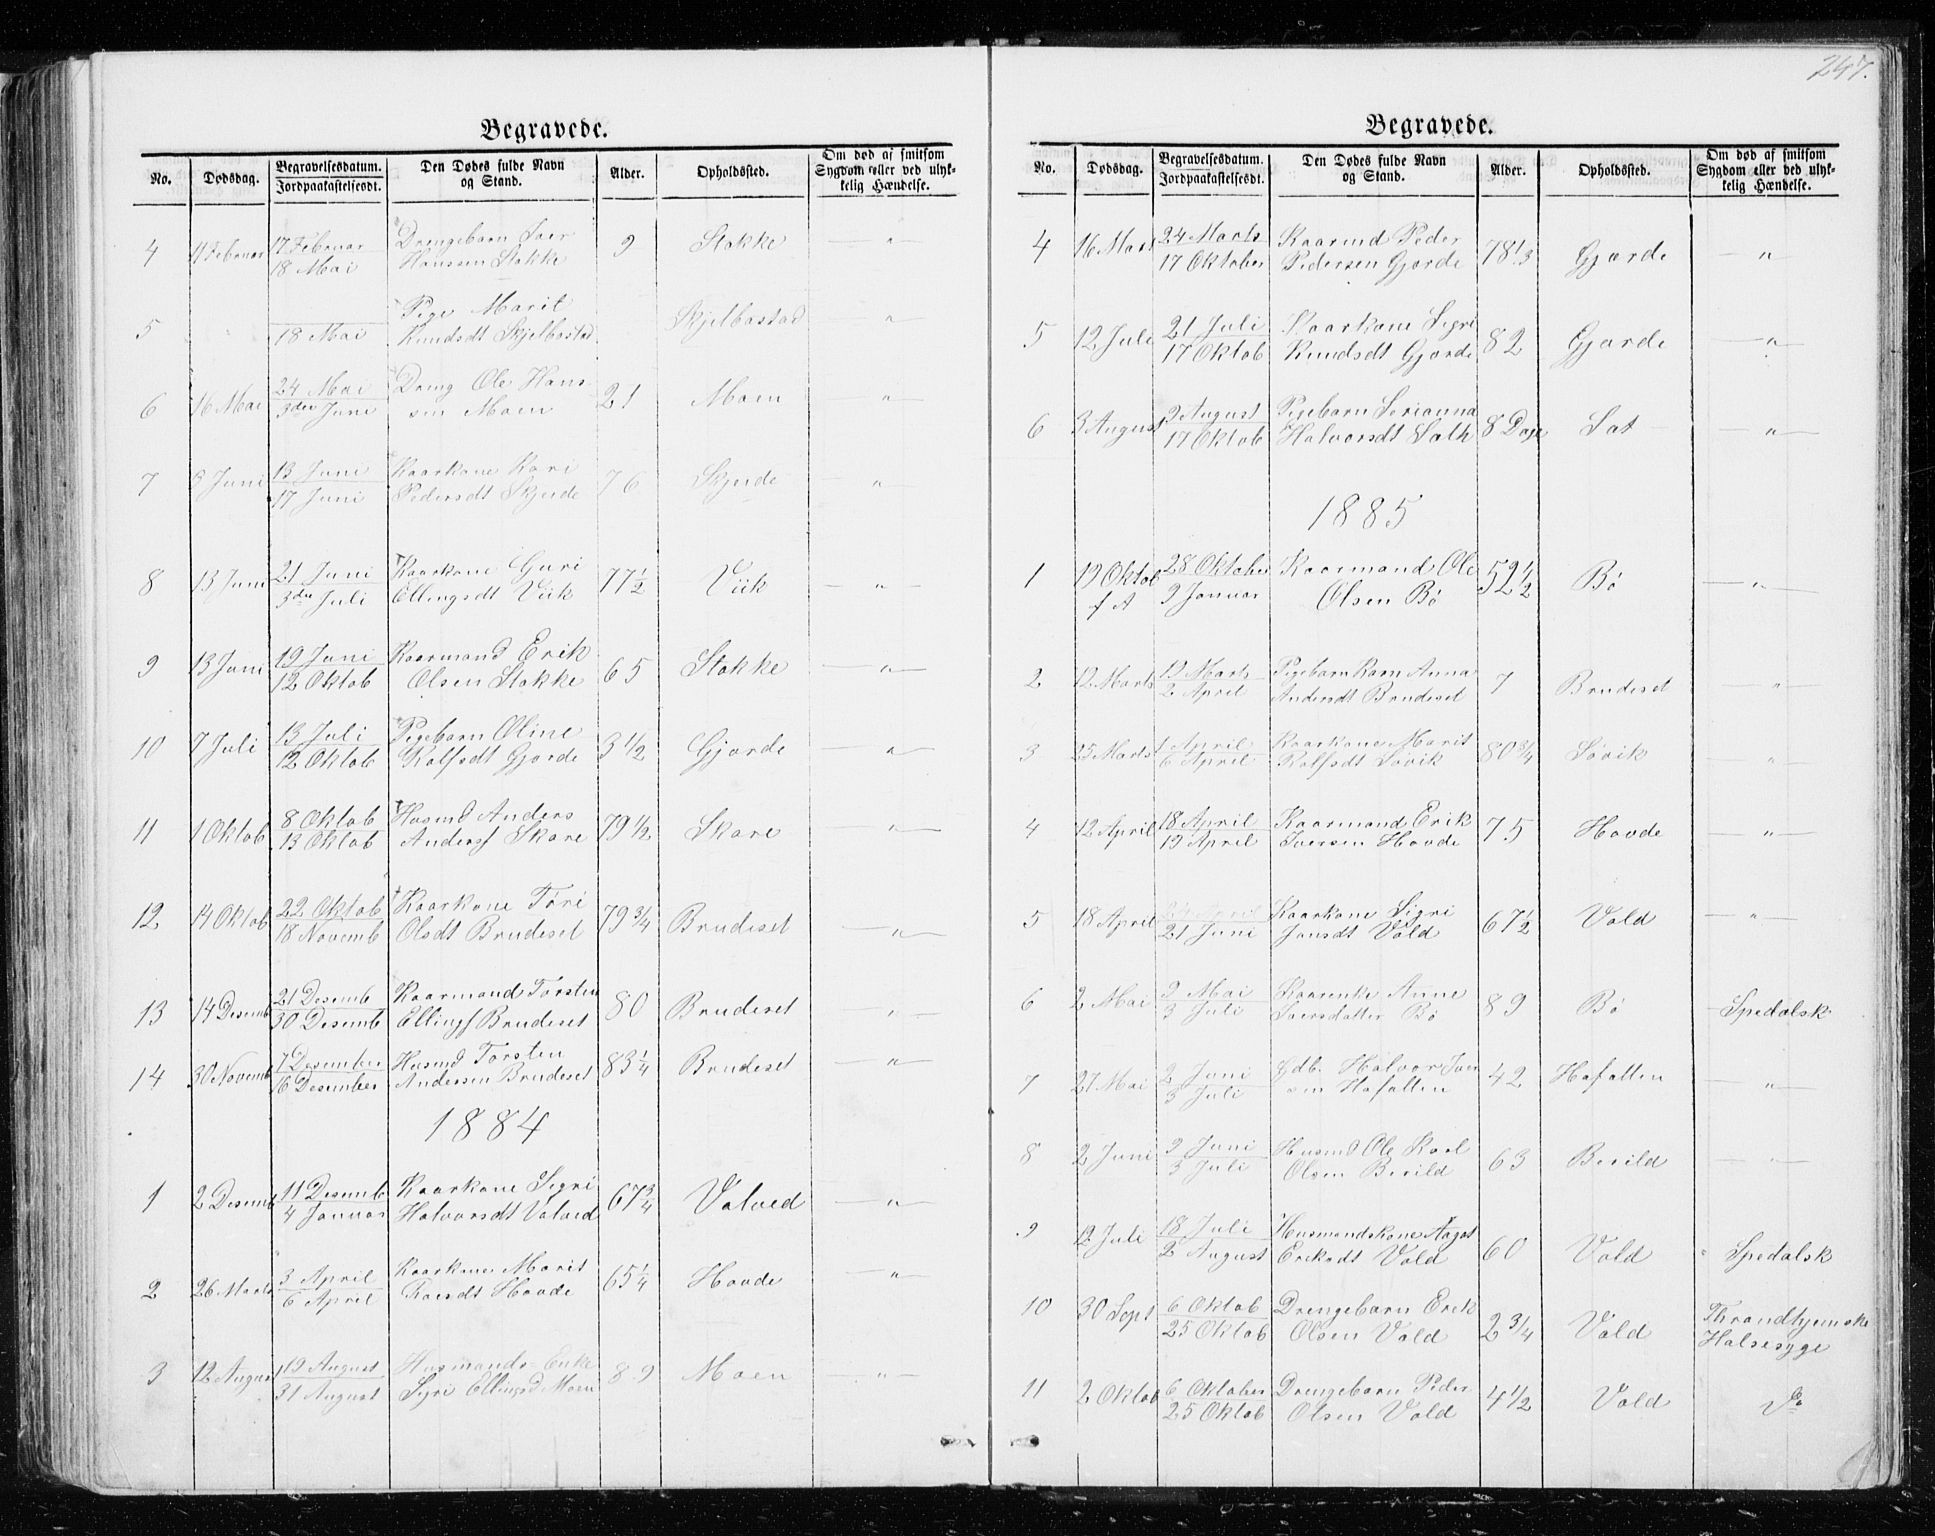 247.
Begravede.
No. Dødsdag. Begravelsesdatum. Jordpaakastelsesdt. Den Dødes fulde Navn og Stand. Alder. Opholdssted. Om død af smitsom Sygdom eller ved ulykkelig Hændelse.
4 11 Februar 17 Februar Drengebarn Iver 9 Stokke — " —
18 Mai Hanssen Stokke
5 Pige Marit Skjelbostad — " —
18 Mai Knudsdt Skjelbostad
6 16 Mai 24 Mai Dreng Ole Hans- 21 Moen — " —
3die Juni sen Moen
7 3 Juni 13 Juni Kaarkone Kari 76 Skjerde — " —
17 Juni Pedersdt Skjerde
8 13 Juni 21 Juni Kaarkone Guri 77 1/2 Viik — " —
3die Juli Ellingsdt Viik
9 13 Juni 19 Juni Kaarmand Erik 65 Stokke — " —
12 Oktob Olsen Stokke
10 7 Juli 13 Juli Pigebarn Oline 3 1/2 Gjørde — " —
12 Oktob Rolfsdt Gjørde
11 1 Oktob 8 Oktob Husmd Anders 79 1/2 Skare — " —
13 Oktob Andersf Skare
12 14 Oktob 22 Oktob Kaarkone Tøri 79 3/4 Brudeset — " —
18 Novemb Olsdt Brudeset
13 14 Desemb 21 Desemb Kaarmand Torsten 80 Brudeset — " —
30 Desemb Ellingf Brudeset
14 30 Novemb 7 Desember Husmd Torsten 83 1/4 Brudeset — " —
16 Desember Andersen Brudeset
1884
1 2 Desemb 11 Desemb Kaarkone Sigri 67 3/4 Valved — " —
4 Januar Halvorsdt Valved
2 26 Marts 3 April Kaarkone Marit 65 1/4 Hovde — " —
6 April Hovde
3 12 August 19 August Husmands-Enke 89 Moen — " —
31 August Sigri Ellingsd Moen
Begravede.
No. Dødsdag. Begravelsesdatum. Jordpaakastelsesdt. Den Dødes fulde Navn og Stand. Alder. Opholdssted. Om død af smitsom Sygdom eller ved ulykkelig Hændelse.
4 16 Mart 24 Marts Kaarmd Peder 78 1/3 Gjørde — " —
17 Oktober Pedersen Gjørde
5 12 Juli 21 Juli Kaarkone Sigri 82 Gjørde — " —
17 Oktob Knudsdt Gjørde
6 3 August 9 August Pigebarn Serianna 8 Dage Sat — " —
17 Oktob Halvorsdt Sath
1885
1 19 Oktob 28 Oktober Kaarmand Ole 52 1/2 Bø — " —
f A 9 Januar Olsen Bø
2 12 Marts 19 Marts Pigebarn Karn Anna 7 Brudeset — " —
2 April Andersdt Brudeset
3 25 Marts 1 April Kaarkone Marit 80 3/4 Søvik — " —
6 April Rolfsdt Søvik
4 12 April 18 April Kaarmand Erik 75 Hovde — " —
19 April Iversen Hovde
5 18 April 24 April Kaarkone Sigri 67 1/2 Vold — " —
21 Juni Jonsdt Vold
6 2 Mai 9 Mai Kaarenke Anne 89 Bø Spedalsk
3 Juli Iversdatter Bø
7 27 Mai 2 Juni Gdb. Halvor Iver 42 Hafallen — " —
3 Juli sen Hafallen
8 2 Juni 9 Juni Husmd Ole Karl 63 Berild — " —
3 Juli Olsen Berild
9 12 Juli 18 Juli Husmandskone Aagot 60 Vold Spedalsk
2 August Eriksdt Vold
10 30 Sept 6 Oktob Drengebarn Erik 2 3/4 Vold Thrandhjemske
25 Oktob Olsen Vold Halsesyge
11 2 Oktob 6 Oktober Drengebarn Peder 4 1/2 Vold Do
25 Oktob Olsen Vold